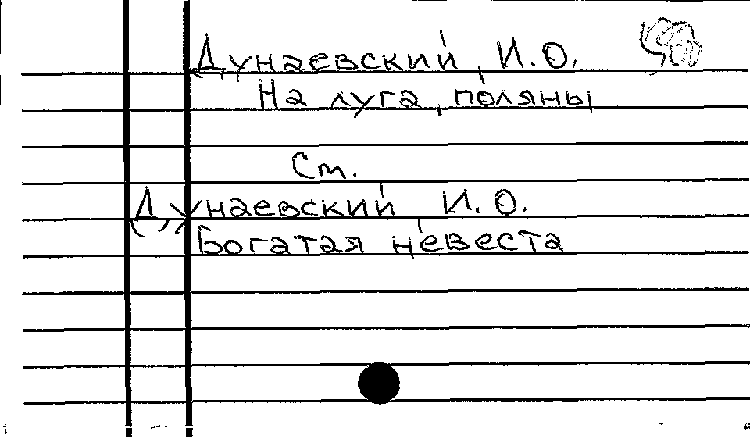 Дунаевский, И.О.
На луга, поляны
См.
Дунаевский, И.О.
Богатая невеста